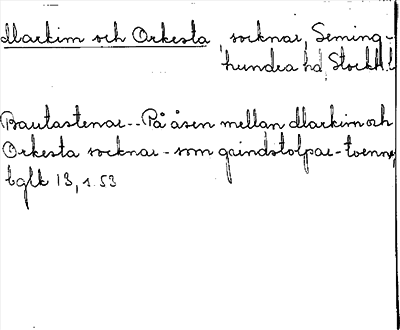 Markim och Orkesta socknar, Seming-
hundra hd, Stockh. l.
Bautastenar -- På åsen mellan Markim och
Orkesta socknar - som grindstolpar - tvenne
bglk 13, 1.53